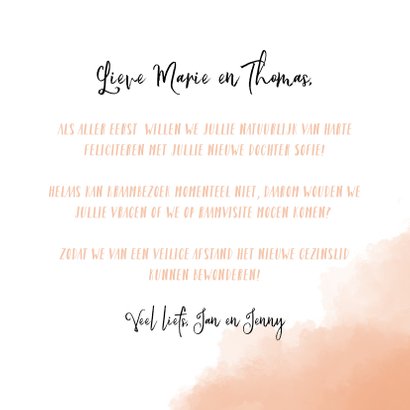 Lieve Marie en Thomas,
ALS ALLER EERST WILLEN WE JULLIE NATUURLIJK VAN HARTE
FELICITEREN MET JULLIE NIEUWE DOCHTER SOFIE!
HELAAS KAN KRAAMBEZOEK MOMENTEEL NIET, DAAROM WOUDEN WE
JULLIE VRAGEN OF WE OP RAAMVISITE MOGEN KOMEN?
ZODAT WE VAN EEN VEILIGE AFSTAND HET NIEUWE GEZINSLID
KUNNEN BEWONDEREN!
Veel liefs, Jan en Jenny